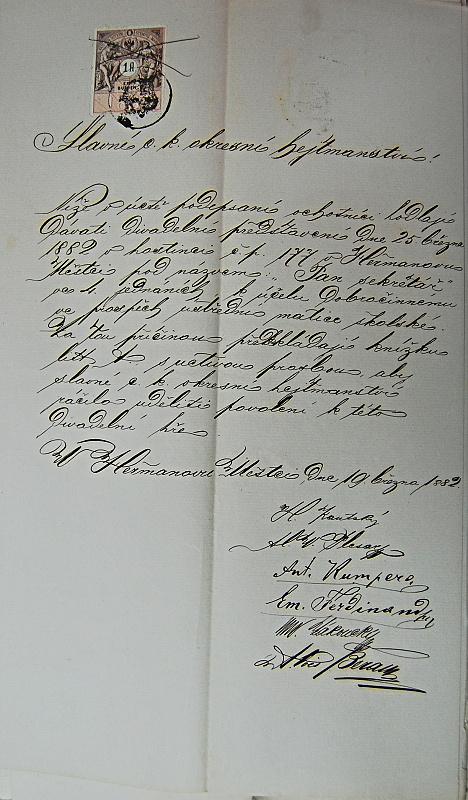 1 fl
Slavné c. k. okresní hejtmanství!
Níže v úctě podepsaní ochotníci hodlají
dávati divadelní představení dne 25 března
1882 v hostinci č p. 177 v Heřmanovu
Městci pod názvem: "Pan sekretář"
ve 4 jednáních k účelu dobročinnému
ve prospěch ústřední matice školské.
Za tou příčinou předkládají knížku
lit A. s uctivou prosbou, aby
slavné c k okresní hejtmanství
ráčilo uděliti povolení k této
divadelní hře.
V Heřmanovu Městci, dne 19. března 1882.
H. Koutský
Ant. Kumpera
Em. Ferdinandský
Beran